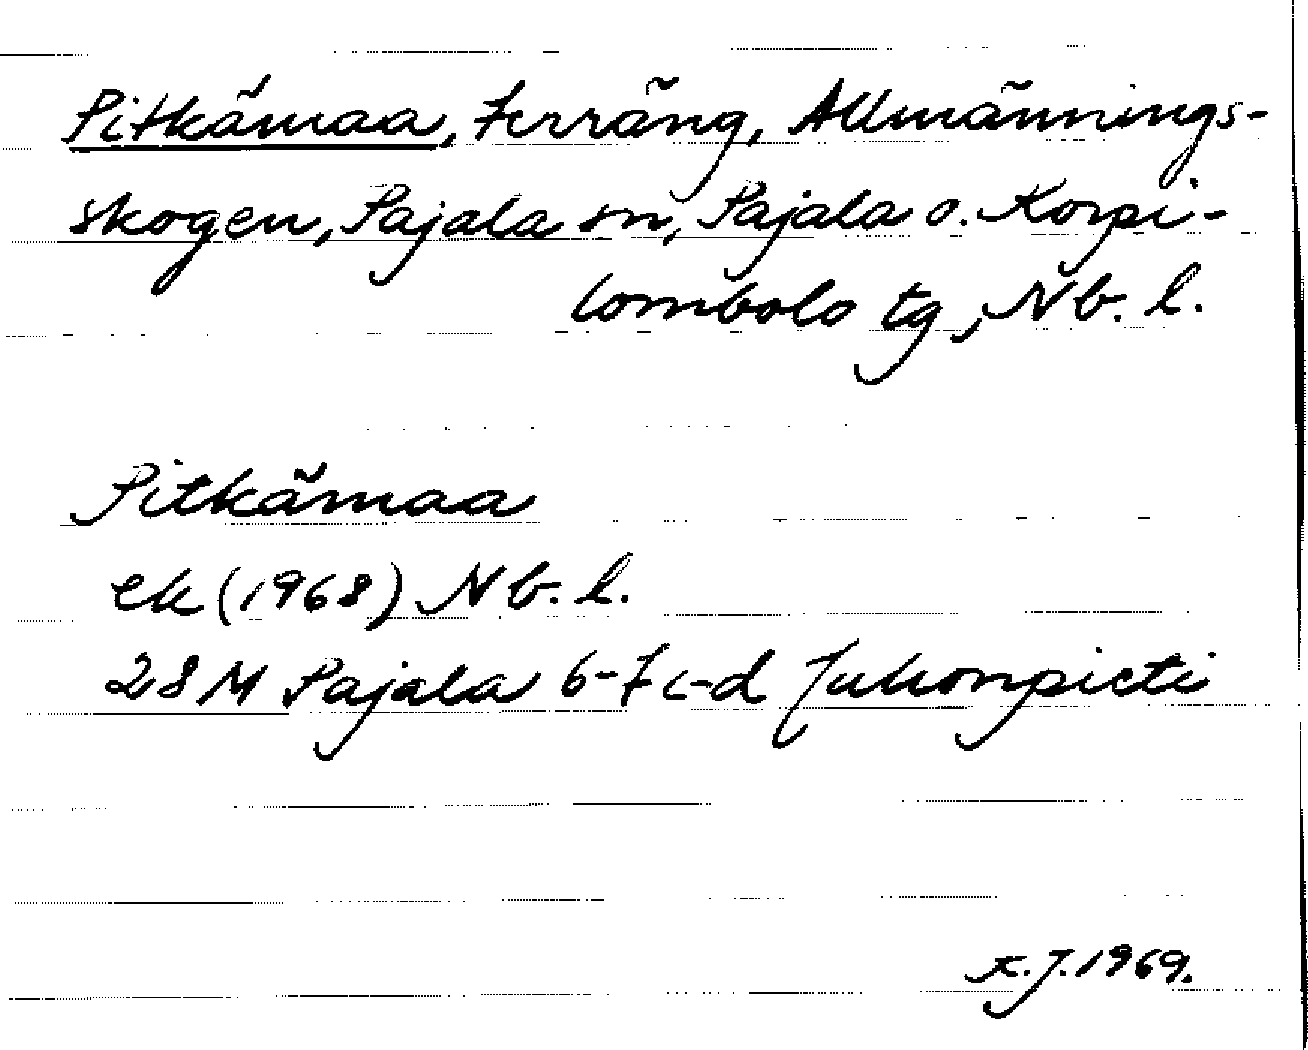 Pitkämaa, terräng, Allmännings-
skogen, Pajala sn, Pajala o. Korpi-
lombolo tg, Nb. l.
Pitkämaa
ek (1968) Nb. l.
28 M Pajala 6-7 c-d Juhonpieti
K.J. 1969.